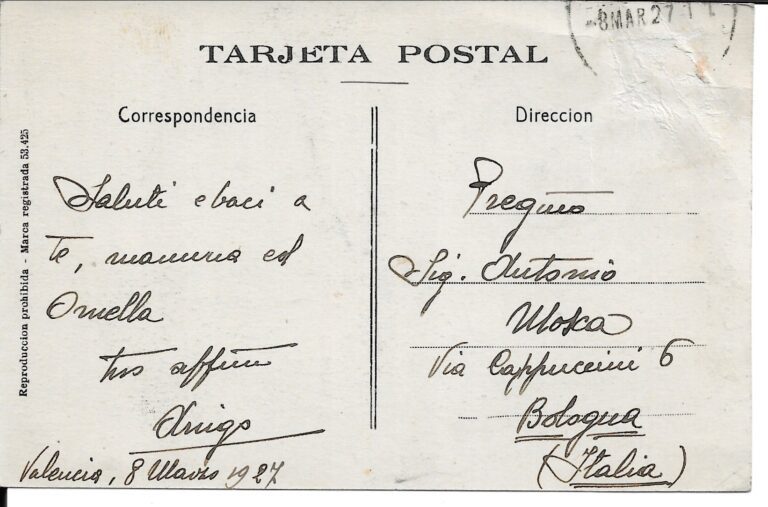 -8 MAR 27
TARJETA POSTAL
Correspondencia
Saluti e baci a
te, mamma ed
Ornella
tuo affmo
Arrigo
Valencia, 8 Marzo 1927
Direccion
Pregmo
Sig. Antonio
Mosca
Via Cappuccini 6
Bologna
(Italia)
Reproduccion prohibida - Marca registrada 53.425